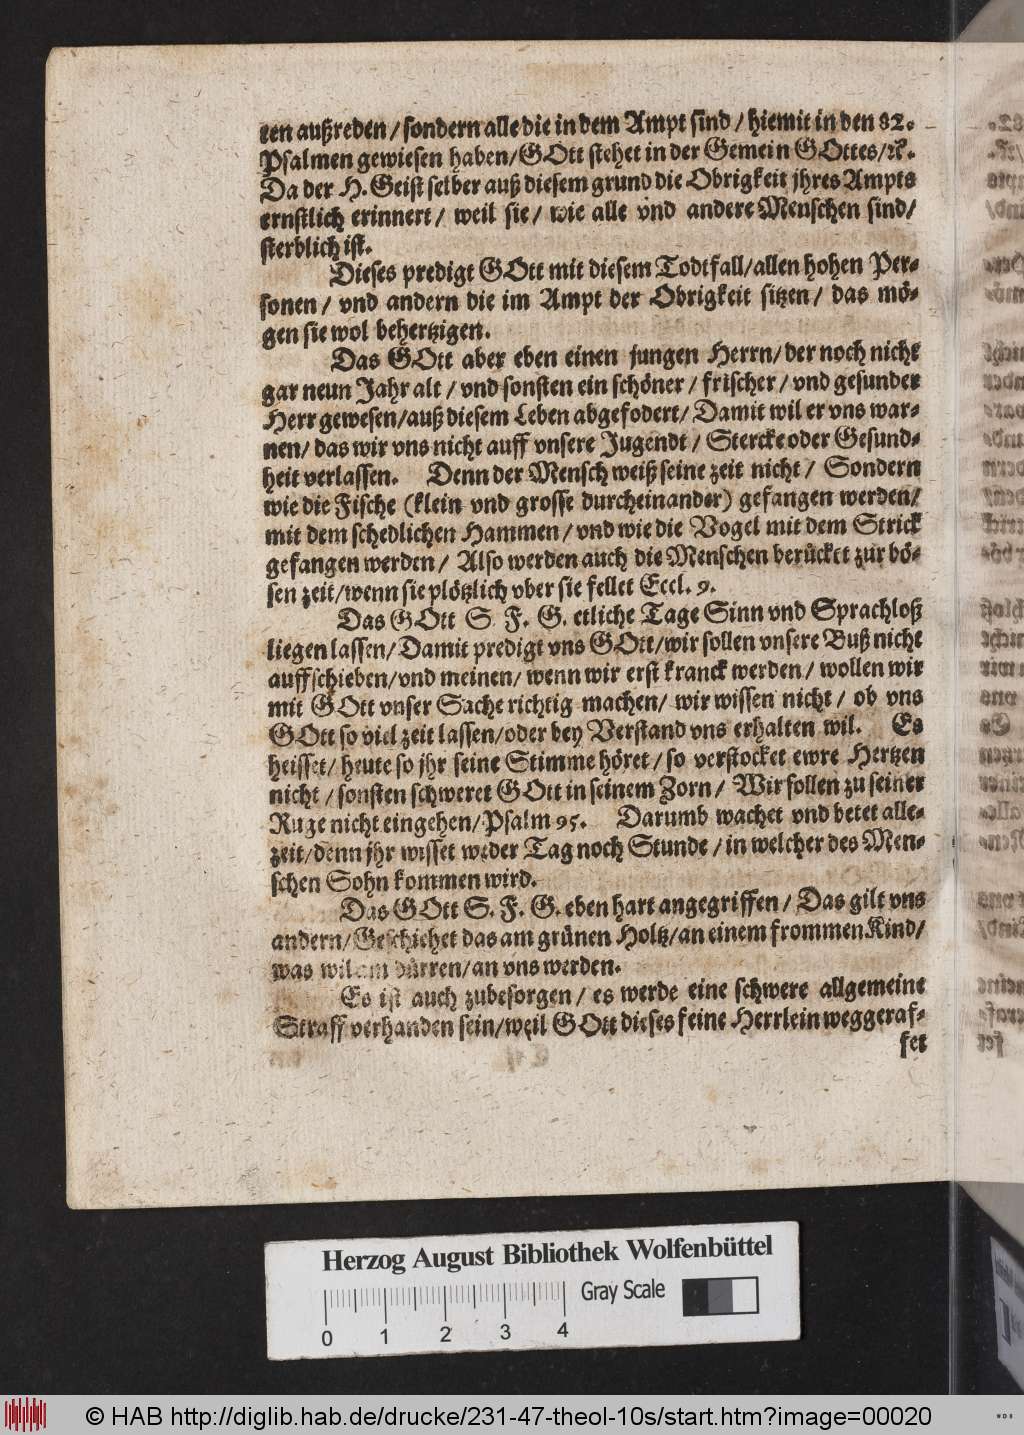 ten außreden / sondern alle die in dem Ampt sind / hiemit in den 82.
Psalmen gewiesen haben/GOtt stehet in der Gemein GOttes/ꝛc.
Da der H. Geist selber auß diesem grund die Obrigkeit jhres Ampts
ernstlich erinnert / weil sie / wie alle vnd andere Menschen sind/
sterblich ist.
Dieses predigt GOtt mit diesem Todtfall/allen hohen Per-
sonen / vnd andern die im Ampt der Obrigkeit sitzen / das mö-
gen sie wol behertzigen.
Das GOtt aber eben einen jungen Herrn/ der noch nicht
gar neun Jahr alt / vnd sonsten ein schöner / frischer / vnd gesunder
Herr gewesen/auß diesem Leben abgefodert/ Damit wil er vns war-
nen/ das wir vns nicht auff vnsere Jugendt / Stercke oder Gesund-
heit verlassen. Denn der Mensch weiß seine zeit nicht / Sondern
wie die Fische (klein vnd grosse durcheinander) gefangen werden/
mit dem schedlichen Hammen / vnd wie die Vogel mit dem Strick
gefangen werden / Also werden auch die Menschen berücket zur bö-
sen zeit/wenn sie plötzlich vber sie fellet Eccl. 9.
Das GOtt S. F. G. etliche Tage Sinn vnd Sprachloß
liegen lassen/ Damit predigt vns GOtt/wir sollen vnsere Buß nicht
auffschieben/vnd meinen/ wenn wir erst kranck werden / wollen wir
mit GOtt vnser Sache richtig machen/ wir wissen nicht / ob vns
GOtt so viel zeit lassen/oder bey Verstand vns erhalten wil. Es
heisset/ heute so jhr seine Stimme höret / so verstocket ewre Hertzen
nicht / sonsten schweret GOtt in seinem Zorn / Wir sollen zu seiner
Ruge nicht eingehen/Psalm 95. Darumb wachet vnd betet alle-
zeit/denn jhr wisset weder Tag noch Stunde / in welcher des Men-
schen Sohn kommen wird.
Das GOtt S. F. G. eben hart angegriffen / Das gilt vns
andern/Geschiehet das am grünen Holtz/an einem frommen Kind/
was wil am dürren/an vns werden.
Es ist auch zubesorgen / es werde eine schwere allgemeine
Straff verhanden sein/weil GOtt dieses feine Herrlein weggeraf-
fet
Herzog August Bibliothek Wolfenbüttel
0 1 2 3 4 Gray Scale
© HAB http://diglib.hab.de/drucke/231-47-theol-10s/start.htm?image=00020